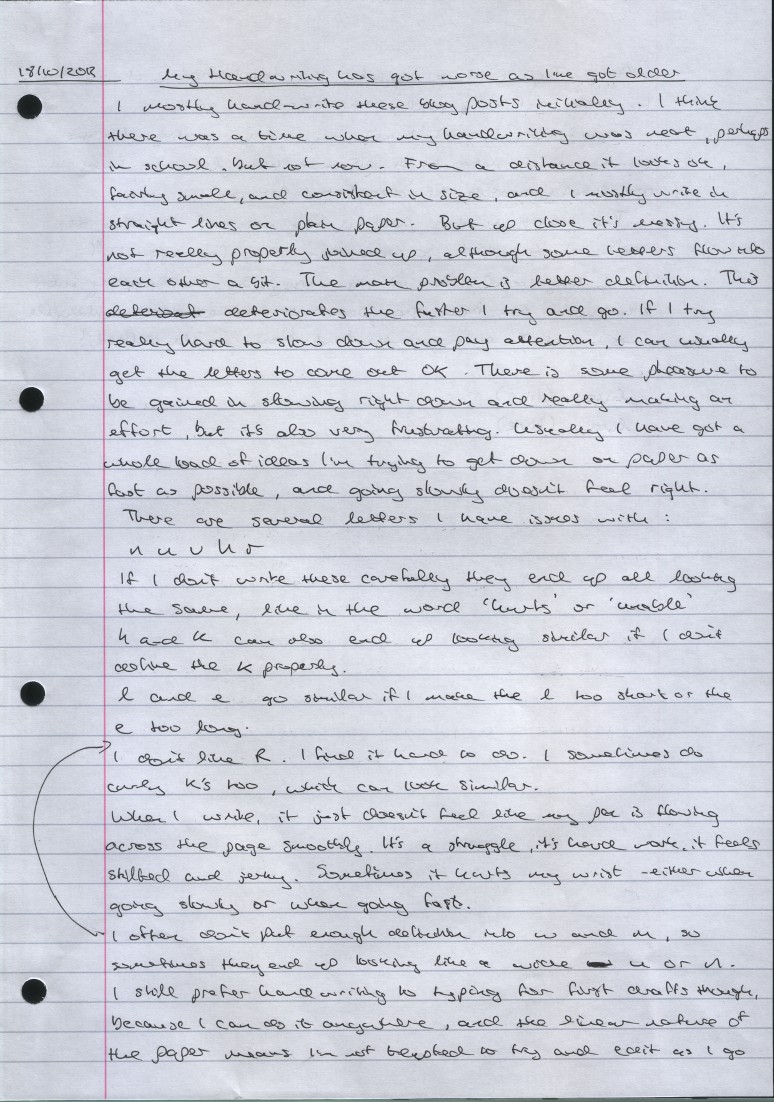 18/10/2012 My Handwriting has got worse as I've got older
I mostly hand-write these blog posts initially. I think
there was a time when my handwriting was neat, perhaps
in school, but not now. From a distance it looks ok,
fairly small, and consistent in size, and I mostly write in
straight lines on plain paper. But up close it's messy. It's
not really properly joined up, although some letters flow into
each other a bit. The main problem is letter definition. This
deteriorates the further I try and go. If I try
really hard to slow down and pay attention, I can usually
get the letters to come out OK. There is some pleasure to
be gained in slowing right down and really making an
effort, but it's also very frustrating. Usually I have got a
whole load of ideas I'm trying to get down on paper as
fast as possible, and going slowly doesn't feel right.
There are several letters I have issues with:
n u v h r
If I don't write these carefully they end up all looking
the same, like in the word 'hurts' or 'unable'
h and K can also end up looking similar if I don't
define the K properly.
l and e go similar if I make the l too short or the
e too long.
I don't like R. I find it hard to do. I sometimes do
curly K's too, which can look similar.
When I write, it just doesn't feel like my pen is flowing
across the page smoothly. It's a struggle, it's hard work, it feels
stilted and jerky. Sometimes it hurts my wrist - either when
going slowly or when going fast.
I often don't put enough definition into w and m, so
sometimes they end up looking like a wide u or n.
I still prefer handwriting to typing for first drafts though,
because I can do it anywhere, and the linear nature of
the paper means I'm not tempted to try and edit as I go